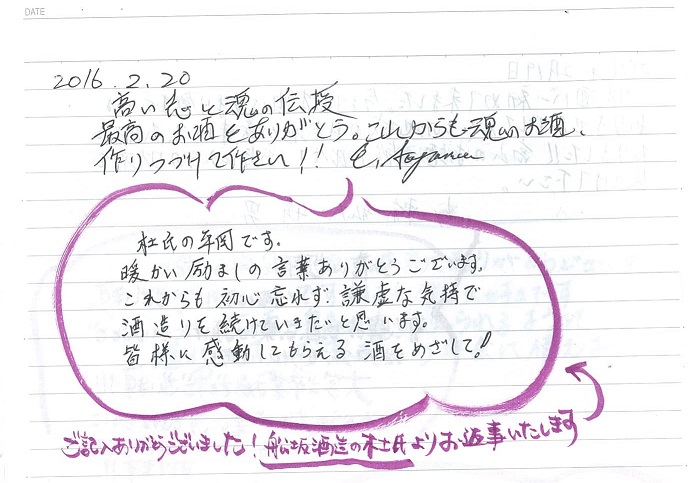 DATE
2016.2.20
高い志と魂の伝授
最高のお酒をありがとう。これからも魂のお酒、
作りつづけて下さい!!
杜氏の平岡です。
暖かい励ましの言葉ありがとうございます。
これからも初心忘れず、謙虚な気持で
酒造りを続けていきたいと思います。
皆様に感動してもらえる酒をめざして!
ご記入ありがとうございました!船坂酒造の杜氏よりお返事いたします